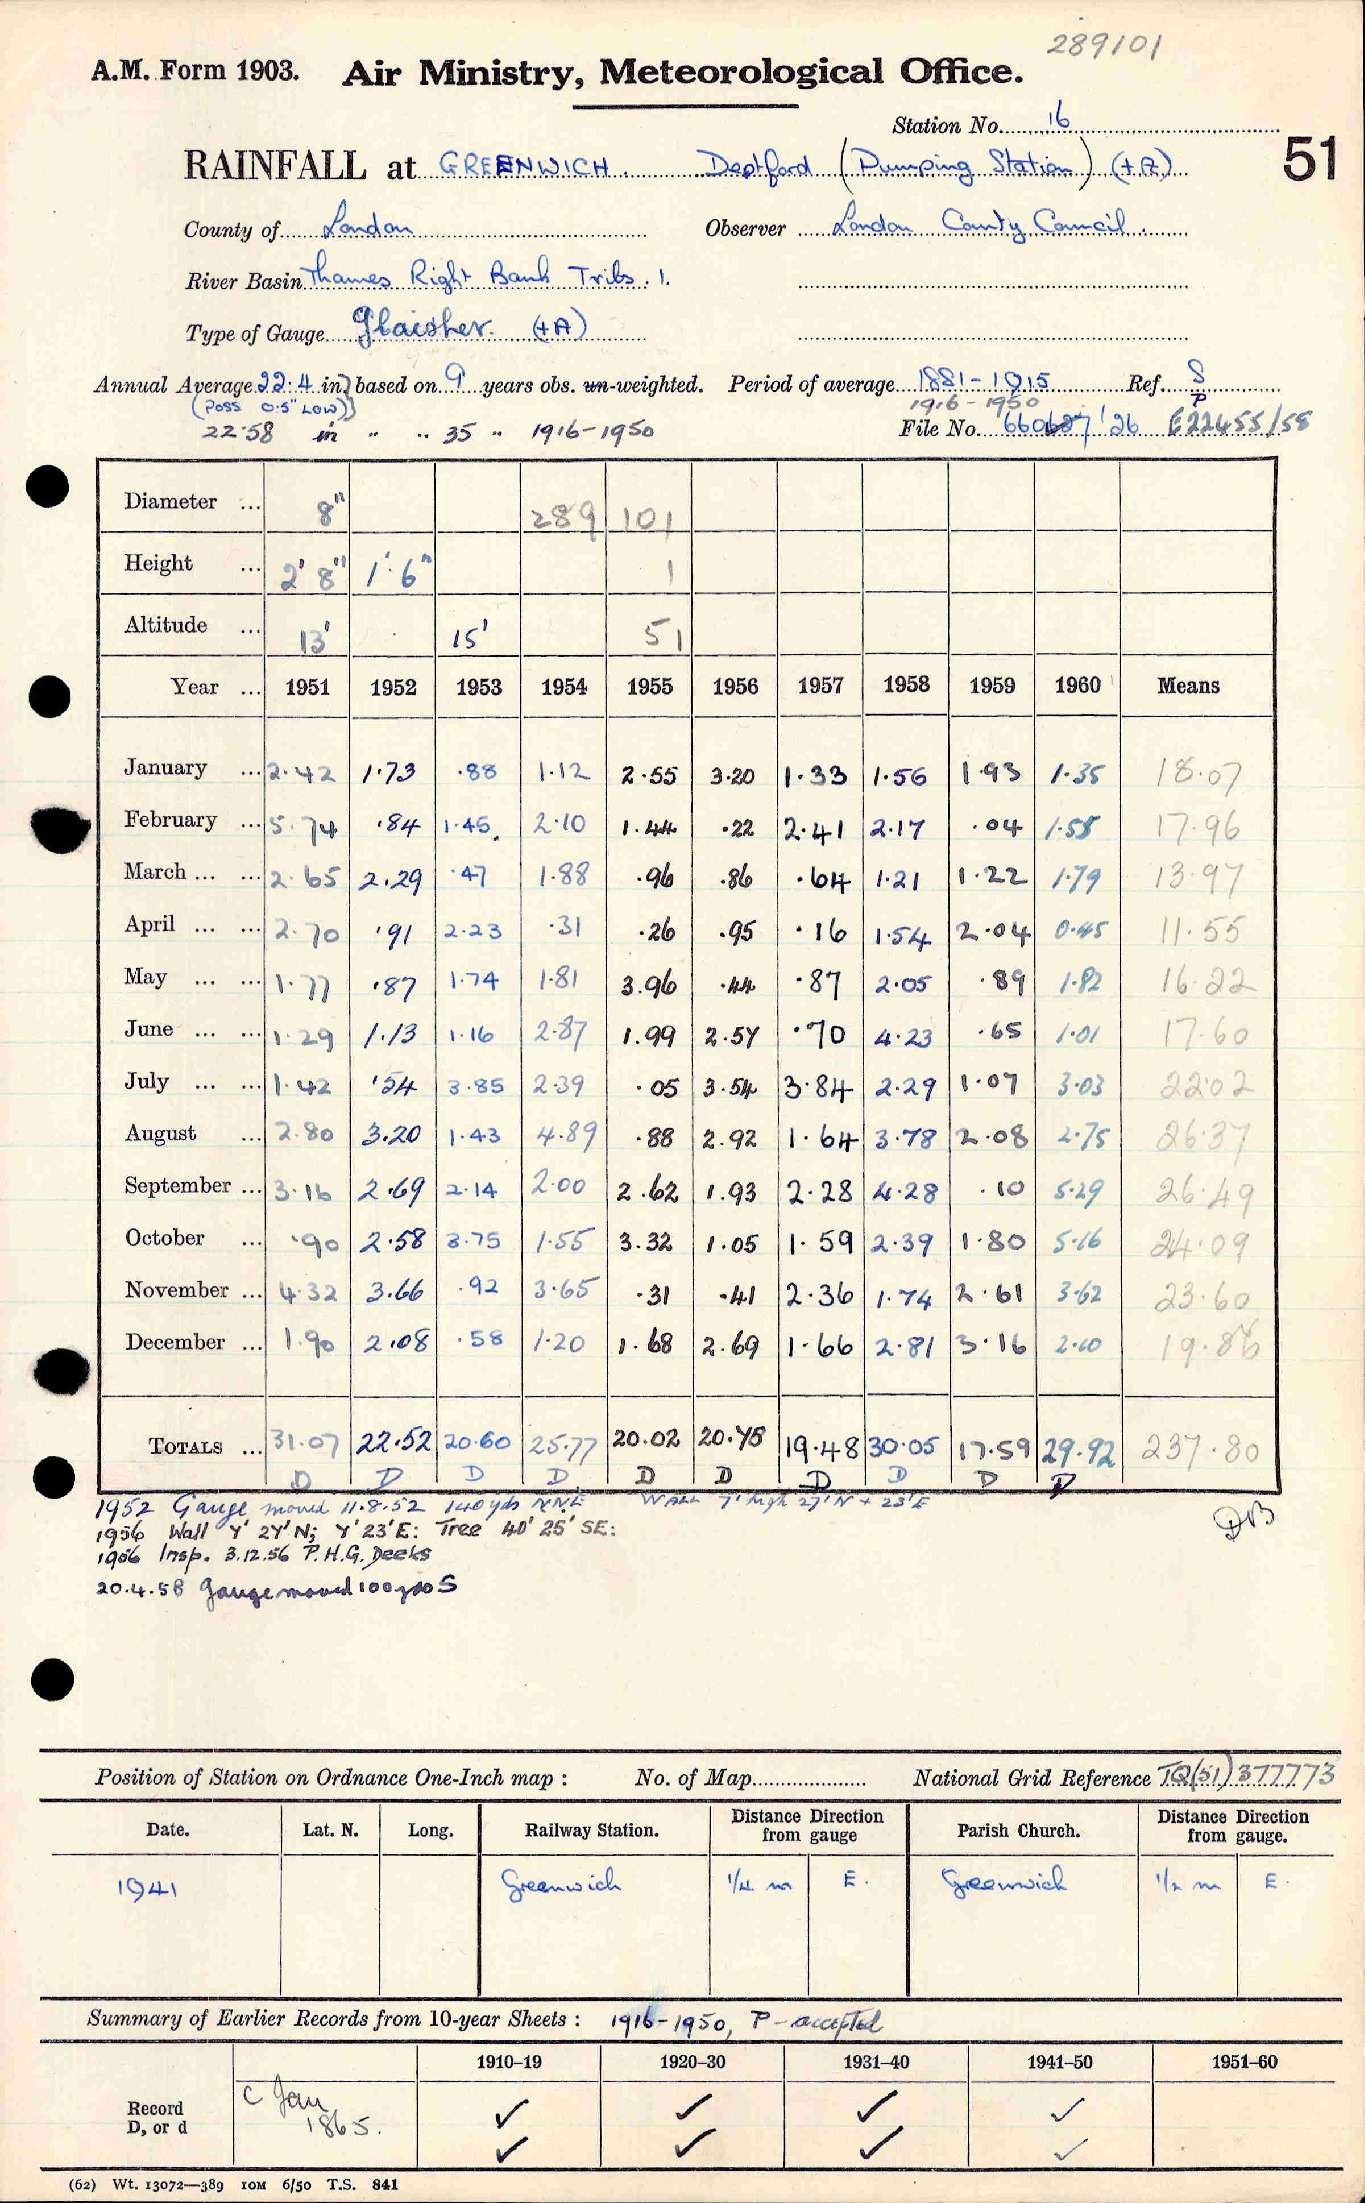 289101
A.M. Form 1903. Air Ministry, Meteorological Office.
Station No. 16
51
RAINFALL at GREENWICH. Deptford (Pumping Station) (+A)
County of London Observer London County Council.
River Basin Thames Right Bank Tribs. 1.
Type of Gauge Glaisher. (+A)
Annual Average 22.4 in } based on 9 years obs. un-weighted. Period of average 1881-1915 Ref. S
(Poss 0.5" Low) 1916-1950 P
22.58 in " " 35 " 1916-1950 File No. 660687/26 E22455/58
Diameter ... 8" 289 101
Height ... 2' 8" 1' 6" 1
Altitude ... 13' 15' 51
Year ... 1951 1952 1953 1954 1955 1956 1957 1958 1959 1960 Means
January ... 2.42 1.73 .88 1.12 2.55 3.20 1.33 1.56 1.93 1.35 18.07
February ... 5.74 .84 1.45 2.10 1.44 .22 2.41 2.17 .04 1.55 17.96
March ... ... 2.65 2.29 .47 1.88 .96 .86 .64 1.21 1.22 1.79 13.97
April ... ... 2.70 .91 2.23 .31 .26 .95 .16 1.54 2.04 0.45 11.55
May ... ... 1.77 .87 1.74 1.81 3.96 .44 .87 2.05 .89 1.82 16.22
June ... ... 1.29 1.13 1.16 2.87 1.99 2.57 .70 4.23 .65 1.01 17.60
July ... ... 1.42 .54 3.85 2.39 .05 3.54 3.84 2.29 1.07 3.03 22.02
August ... 2.80 3.20 1.43 4.89 .88 2.92 1.64 3.78 2.08 2.75 26.37
September ... 3.16 2.69 2.14 2.00 2.62 1.93 2.28 4.28 .10 5.29 26.49
October ... .90 2.58 3.75 1.55 3.32 1.05 1.59 2.39 1.80 5.16 24.09
November ... 4.32 3.66 .92 3.65 .31 .41 2.36 1.74 2.61 3.62 23.60
December ... 1.90 2.08 .58 1.20 1.68 2.69 1.66 2.81 3.16 2.10 19.86
TOTALS ... 31.07 22.52 20.60 25.77 20.02 20.78 19.48 30.05 17.59 29.92 237.80
D D D D D D D D D D
1952 Gauge moved 11.8.52 140yds NNE Wall 7' high 27'N + 23'E
DB
1956 Wall 7' 27'N; 7' 23'E: Tree 40' 25' SE:
1956 Insp. 3.12.56 P.H.G. Deeks
20.4.58 Gauge moved 100yds S
Position of Station on Ordnance One-Inch map : No. of Map National Grid Reference TQ(51)377773
Date. Lat. N. Long. Railway Station. Distance from gauge Direction Parish Church. Distance from gauge. Direction
1941 Greenwich 1/4 m E. Greenwich 1/2 m E.
Summary of Earlier Records from 10-year Sheets : 1916-1950, P-accepted
1910–19 1920–30 1931–40 1941–50 1951–60
Record D, or d C Jan 1865. ✓ ✓ ✓ ✓
✓ ✓ ✓ ✓
(62) Wt. 13072—389 10M 6/50 T.S. 841